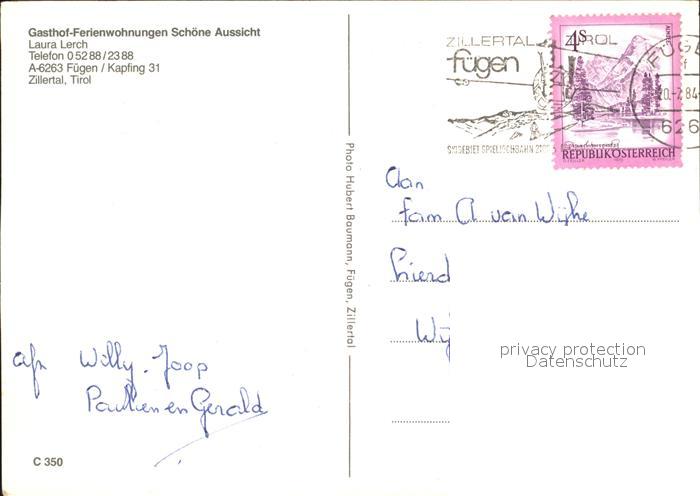 Gasthof-Ferienwohnungen Schöne Aussicht
Laura Lerch
Telefon 0 52 88 / 23 88
A-6263 Fügen / Kapfing 31
Zillertal, Tirol
ZILLERTAL TIROL
fügen
SKIGEBIET SPIELJOCHBAHN
FÜGE
20.-2.84
626
4S
REPUBLIK ÖSTERREICH
Photo Hubert Baumann, Fügen, Zillertal
Aan
fam A van Wijhe
Wij
privacy protection
Datenschutz
afz Willy. Joop
Paulien en Gerald
C 350